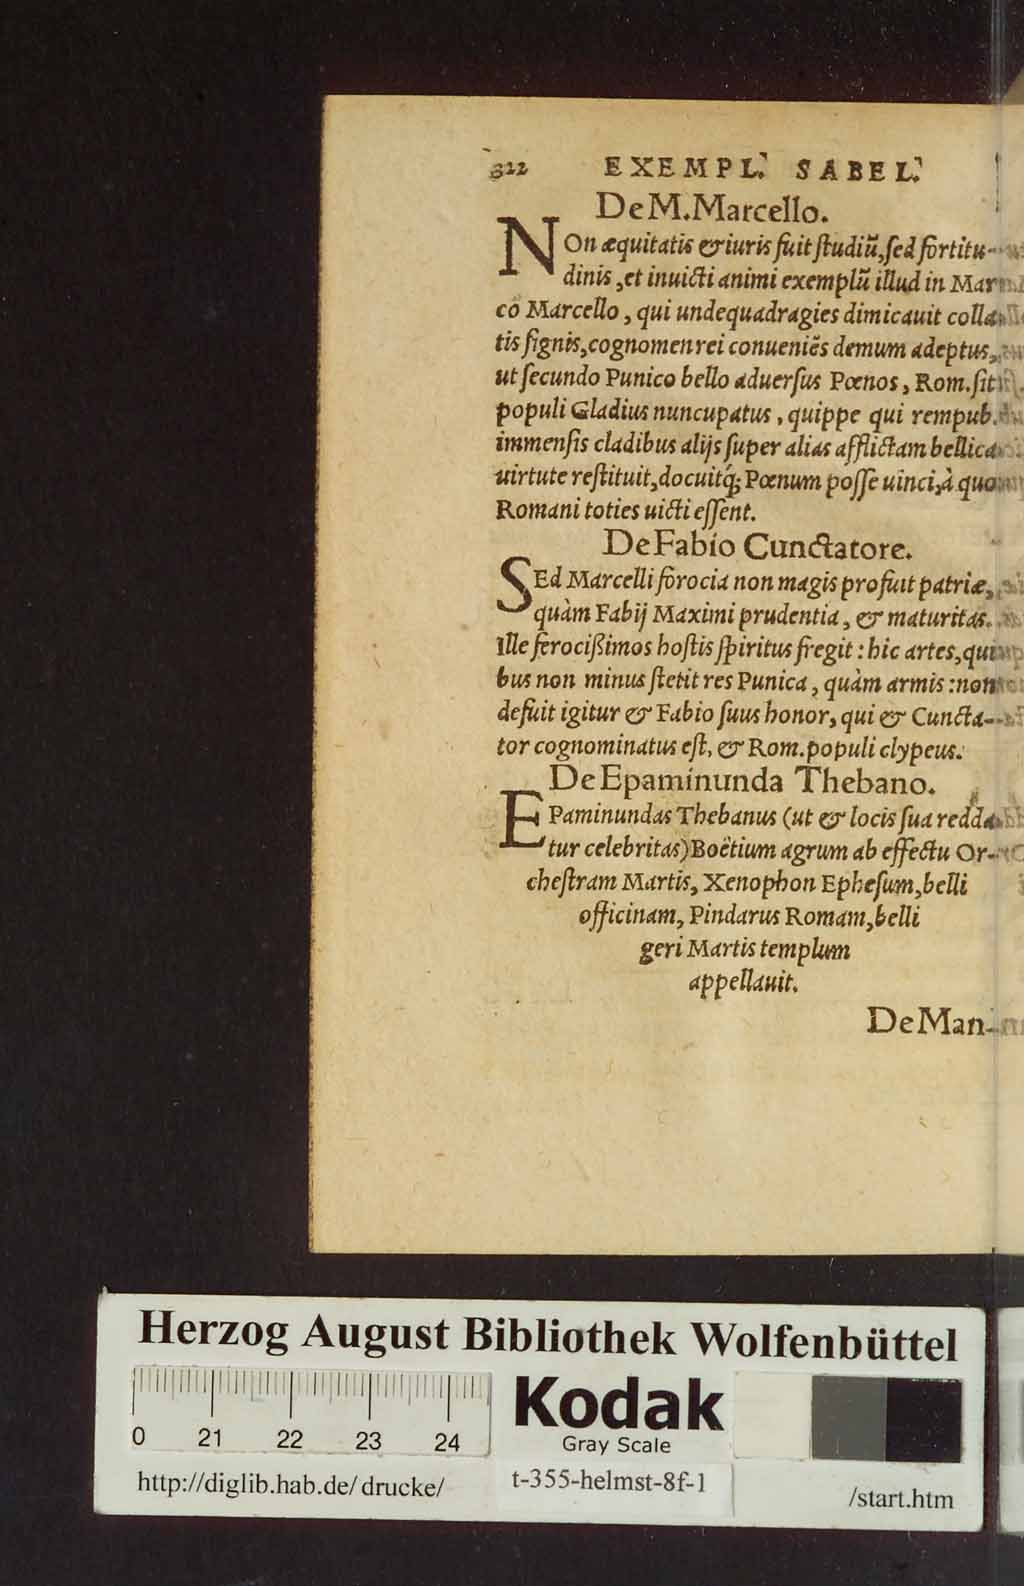 322 EXEMPL. SABEL.
De M. Marcello.
NOn æquitatis & iuris fuit studiũ, sed fortitu-
dinis, et inuicti animi exemplũ illud in Mar
co Marcello, qui undequadragies dimicauit colla
tis signis, cognomen rei conueniẽs demum adeptus,
ut secundo Punico bello aduersus Pœnos, Rom. sit
populi Gladius nuncupatus, quippe qui rempub.
immensis cladibus alijs super alias afflictam bellica
uirtute restituit, docuitq́; Pœnum posse uinci, à quo
Romani toties uicti essent.
De Fabio Cunctatore.
SEd Marcelli ferocia non magis profuit patriæ,
quàm Fabij Maximi prudentia, & maturitas.
Ille ferocißimos hostis spiritus fregit: hic artes, qui
bus non minus stetit res Punica, quàm armis: non
defuit igitur & Fabio suus honor, qui & Cuncta-
tor cognominatus est, & Rom. populi clypeus.
De Epaminunda Thebano.
EPaminundas Thebanus (ut & locis sua redda
tur celebritas) Boëtium agrum ab effectu Or-
chestram Martis, Xenophon Ephesum, belli
officinam, Pindarus Romam, belli
geri Martis templum
appellauit.
De Man-
Herzog August Bibliothek Wolfenbüttel
0 21 22 23 24
Kodak
Gray Scale
http://diglib.hab.de/drucke/ t-355-helmst-8f-1 /start.htm